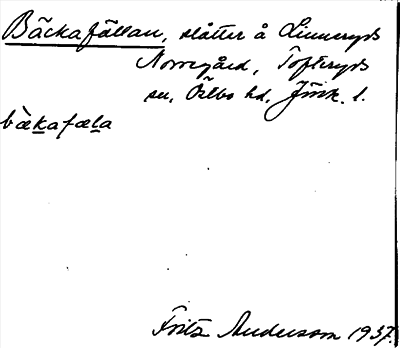 Bäckafällan, slåtter å Linneryds
Norregård, Tofteryds
sn, Östbo hd, Jönk. l.
bækafæla
Fritz Anderson 1937.